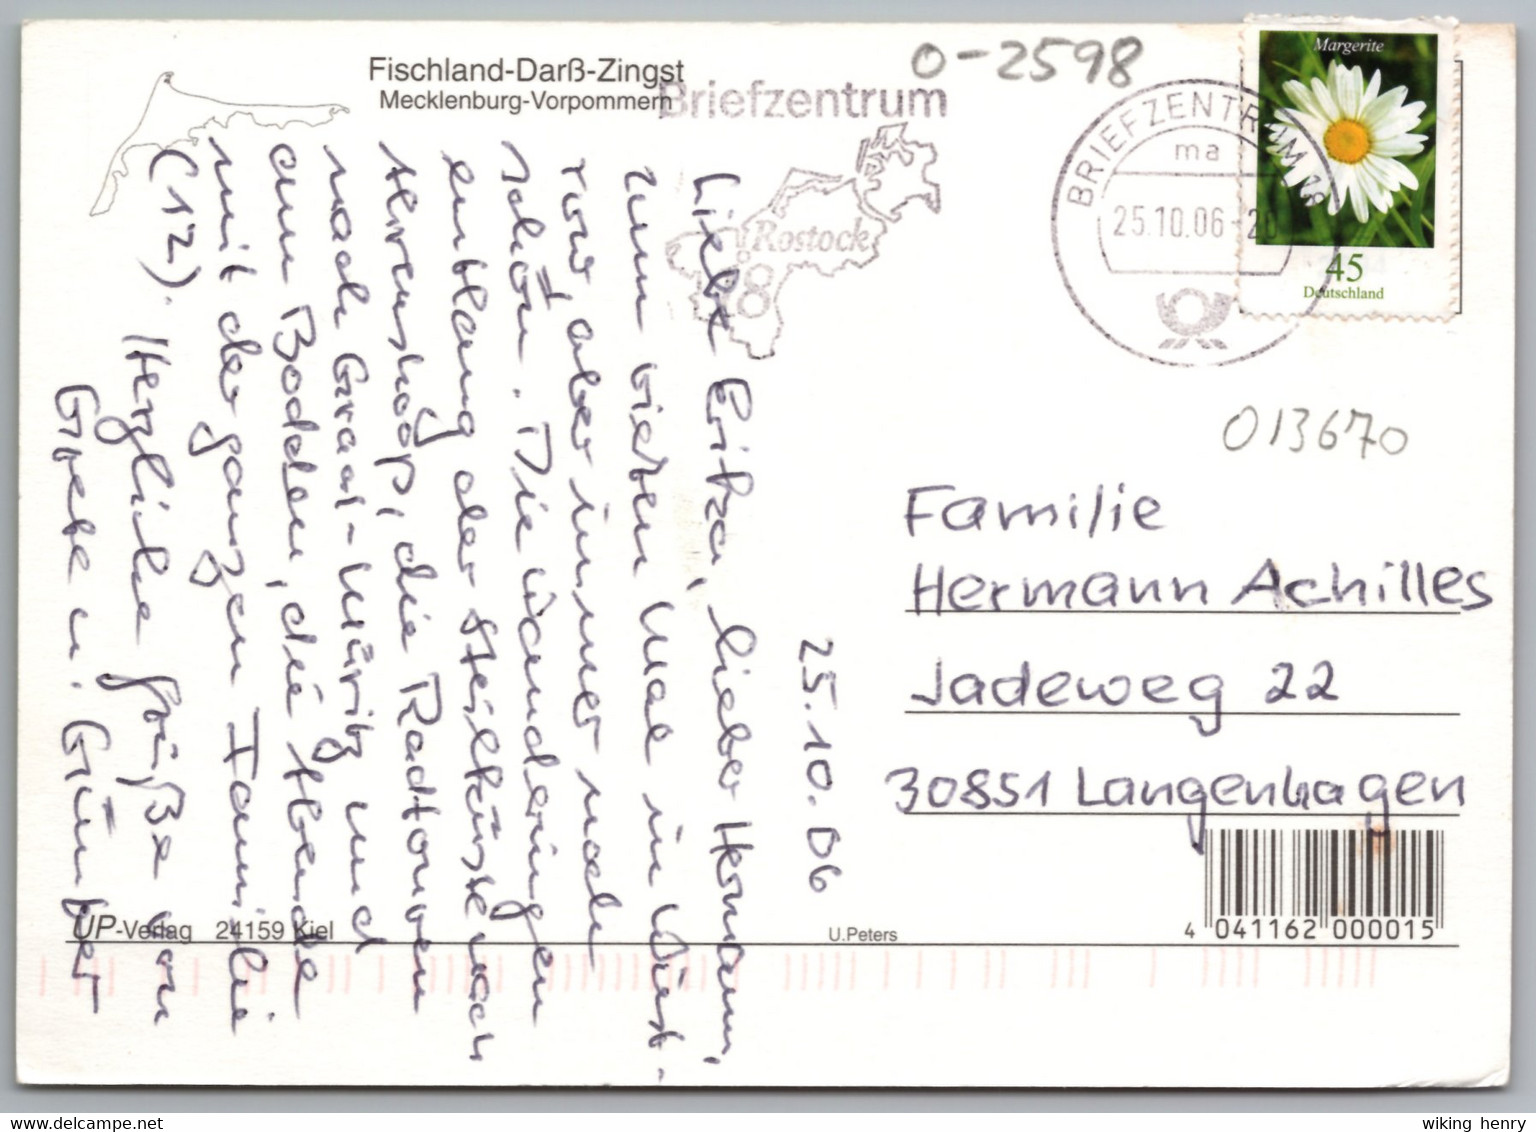 Fischland-Darß-Zingst
Mecklenburg-Vorpommern
Briefzentrum
Rostock
18
0-2598
BRIEFZENTRUM 18
ma
25.10.06-20
Margerite
45
Deutschland
013670
25.10.06
Liebe Erika, lieber Hermann,
zum vierten Mal in Wust-
row, aber immer noch
schön. Die Wanderungen
entlang der Steilküste nach
Ahrenshoop, die Radtouren
nach Graal-Müritz und
am Bodden, die Abende
mit der ganzen Familie
(12). Herzliche Grüße von
u. Günther
Familie
Hermann Achilles
Jadeweg 22
30851 Langenhagen
UP-Verlag 24159 Kiel
U.Peters
4 041162 000015
wiking henry